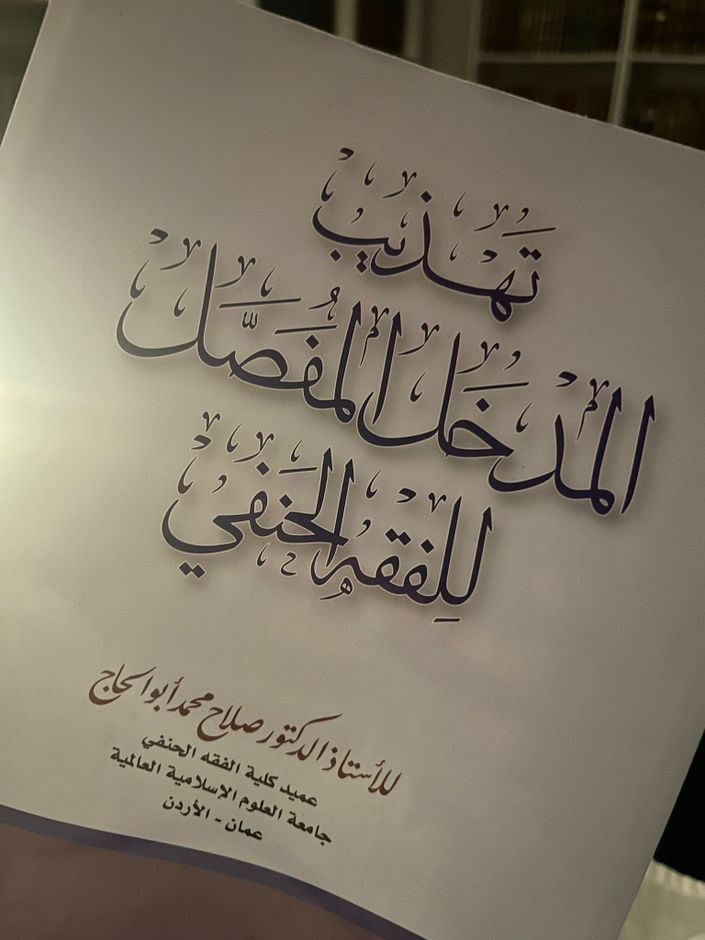 تهذيب
المدخل المفصّل
للفقه الحنفي
للأستاذ الدكتور صلاح محمد أبو الحاج
عميد كلية الفقه الحنفي
جامعة العلوم الإسلامية العالمية
عمان - الأردن